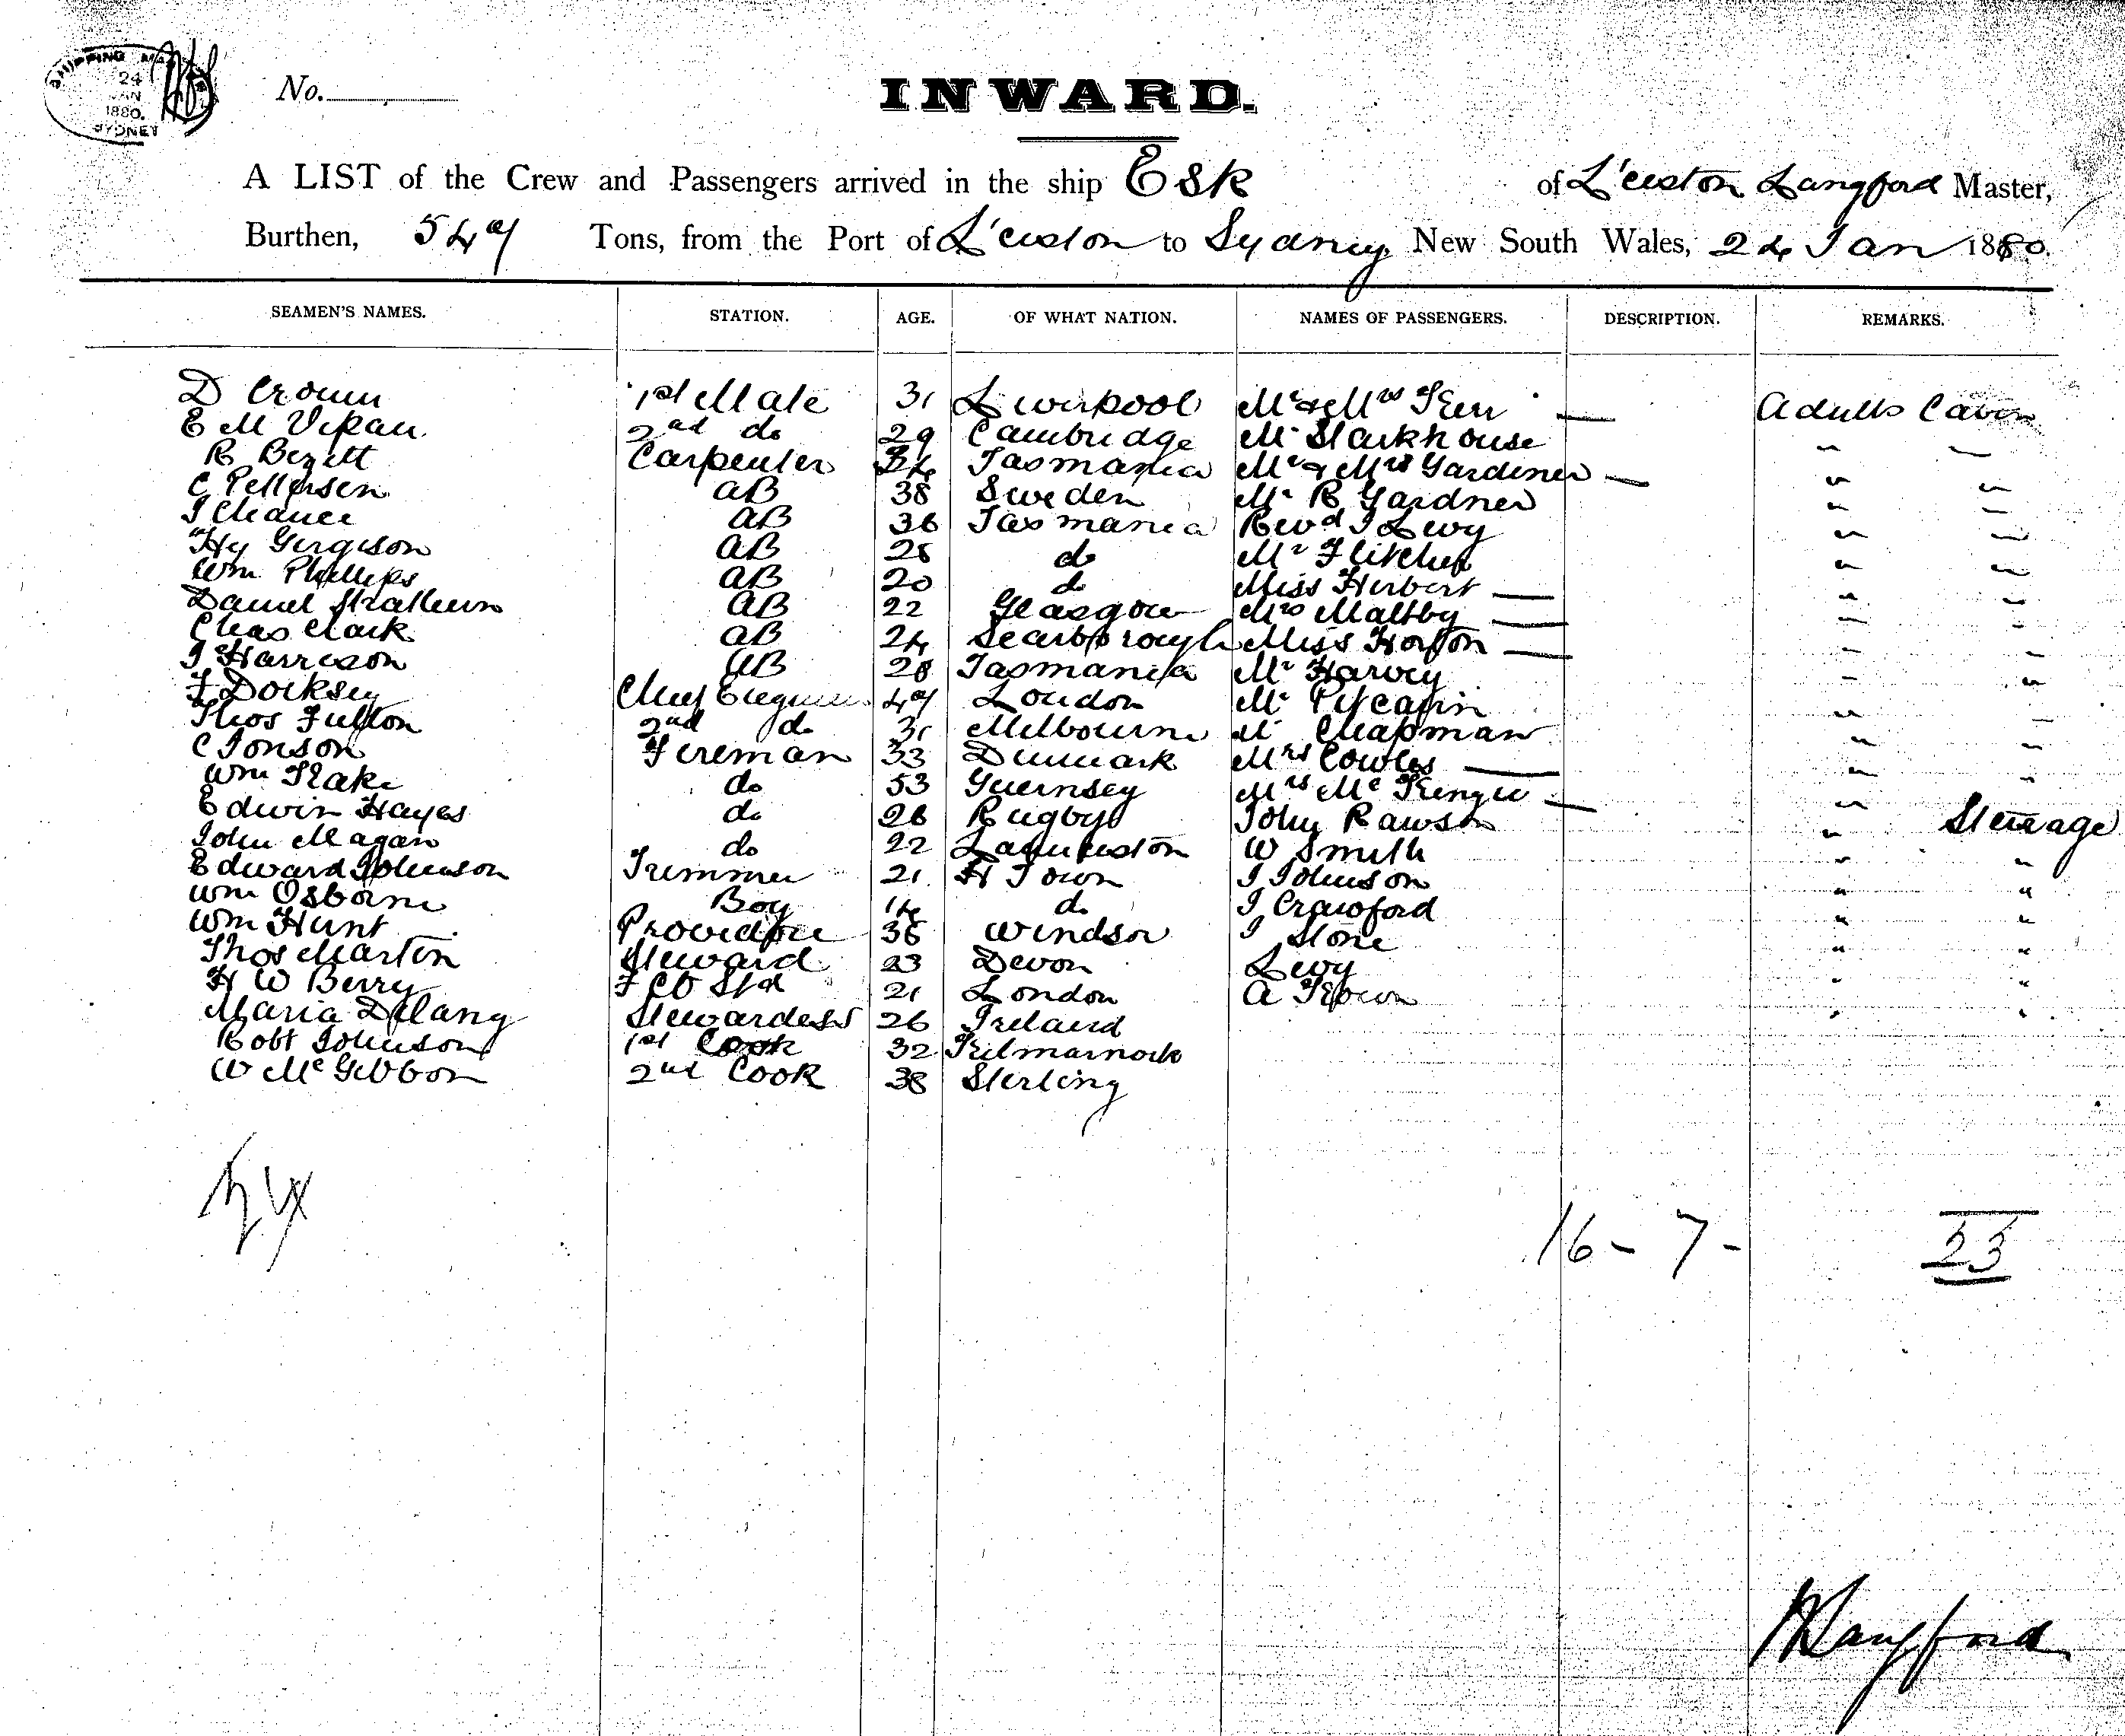 SHIPPING MASTER
24
JAN
1880.
SYDNEY
No.
INWARD.
A LIST of the Crew and Passengers arrived in the ship Esk of L'ceston Langford Master,
Burthen, 549 Tons, from the Port of L'ceston to Sydney, New South Wales, 24 Jan 1880.
SEAMEN'S NAMES. STATION. AGE. OF WHAT NATION. NAMES OF PASSENGERS. DESCRIPTION. REMARKS.
D 1st Mate 31 Liverpool Mr & Mrs Kerr — Adults Cabin
E M Vipan 2nd do 29 Cambridge Mr Stackhouse " "
R Bezett Carpenter 34 Tasmania Mr & Mrs Gardener — " "
C Pettersen AB 38 Sweden Mr R Gardner " "
J Chance AB 36 Tasmania Revd J Levy " "
Hy AB 28 do Mr Fletcher " "
Wm Phillips AB 20 do Miss Herbert — " "
Daniel AB 22 Glasgow Mrs Maltby — " "
Chas Clark AB 24 Scarborough Miss Horton — " "
J Harrison AB 28 Tasmania Mr Harvey " "
F Dorksey Chief Engineer 49 London Mr Pitcairn " "
Thos Fulton 2nd do 31 Melbourne M Chapman " "
C Jonson Fireman 33 Denmark Mrs Cowles — " "
Wm Kake do 53 Guernsey Mrs Mc Kenzie — "
Edwin Hayes do 26 Rugby John Rawson " Steerage
John Magan do 22 Launceston W Smith " "
Edward Johnson Trimmer 21 H Town J Johnson " "
Wm Osborne Boy 14 do J Crawford " "
Wm Hunt Providore 36 Windsor J Stone " "
Thos Martin Steward 23 Devon Levy " "
H W Berry F C Std 21 London A Kown " "
Maria Delany Stewardess 26 Ireland
Robt Johnson 1st Cook 32 Kilmarnock
W Mc Gibbon 2nd Cook 38 Sterling
24
16 - 7 - 23
Langford